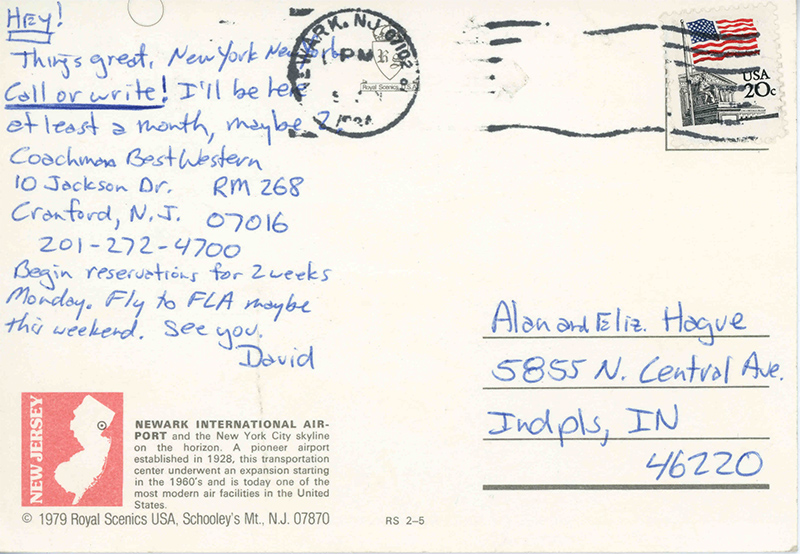 Hey!
Things great, New York New York
Call or write! I'll be here
at least a month, maybe 2.
Coachman Best Western
10 Jackson Dr. RM 268
Cranford, N.J. 07016
201-272-4700
Begin reservations for 2 weeks
Monday. Fly to FLA maybe
this weekend. See you,
David
NEWARK, N.J. 07102
PM
Royal Scenics U.S.A.
USA
20c
Alan and Eliz. Hague
5855 N. Central Ave.
Indpls, IN
46220
NEW JERSEY
NEWARK INTERNATIONAL AIR-
PORT and the New York City skyline
on the horizon. A pioneer airport
established in 1928, this transportation
center underwent an expansion starting
in the 1960's and is today one of the
most modern air facilities in the United
States.
© 1979 Royal Scenics USA, Schooley's Mt., N.J. 07870
RS 2-5